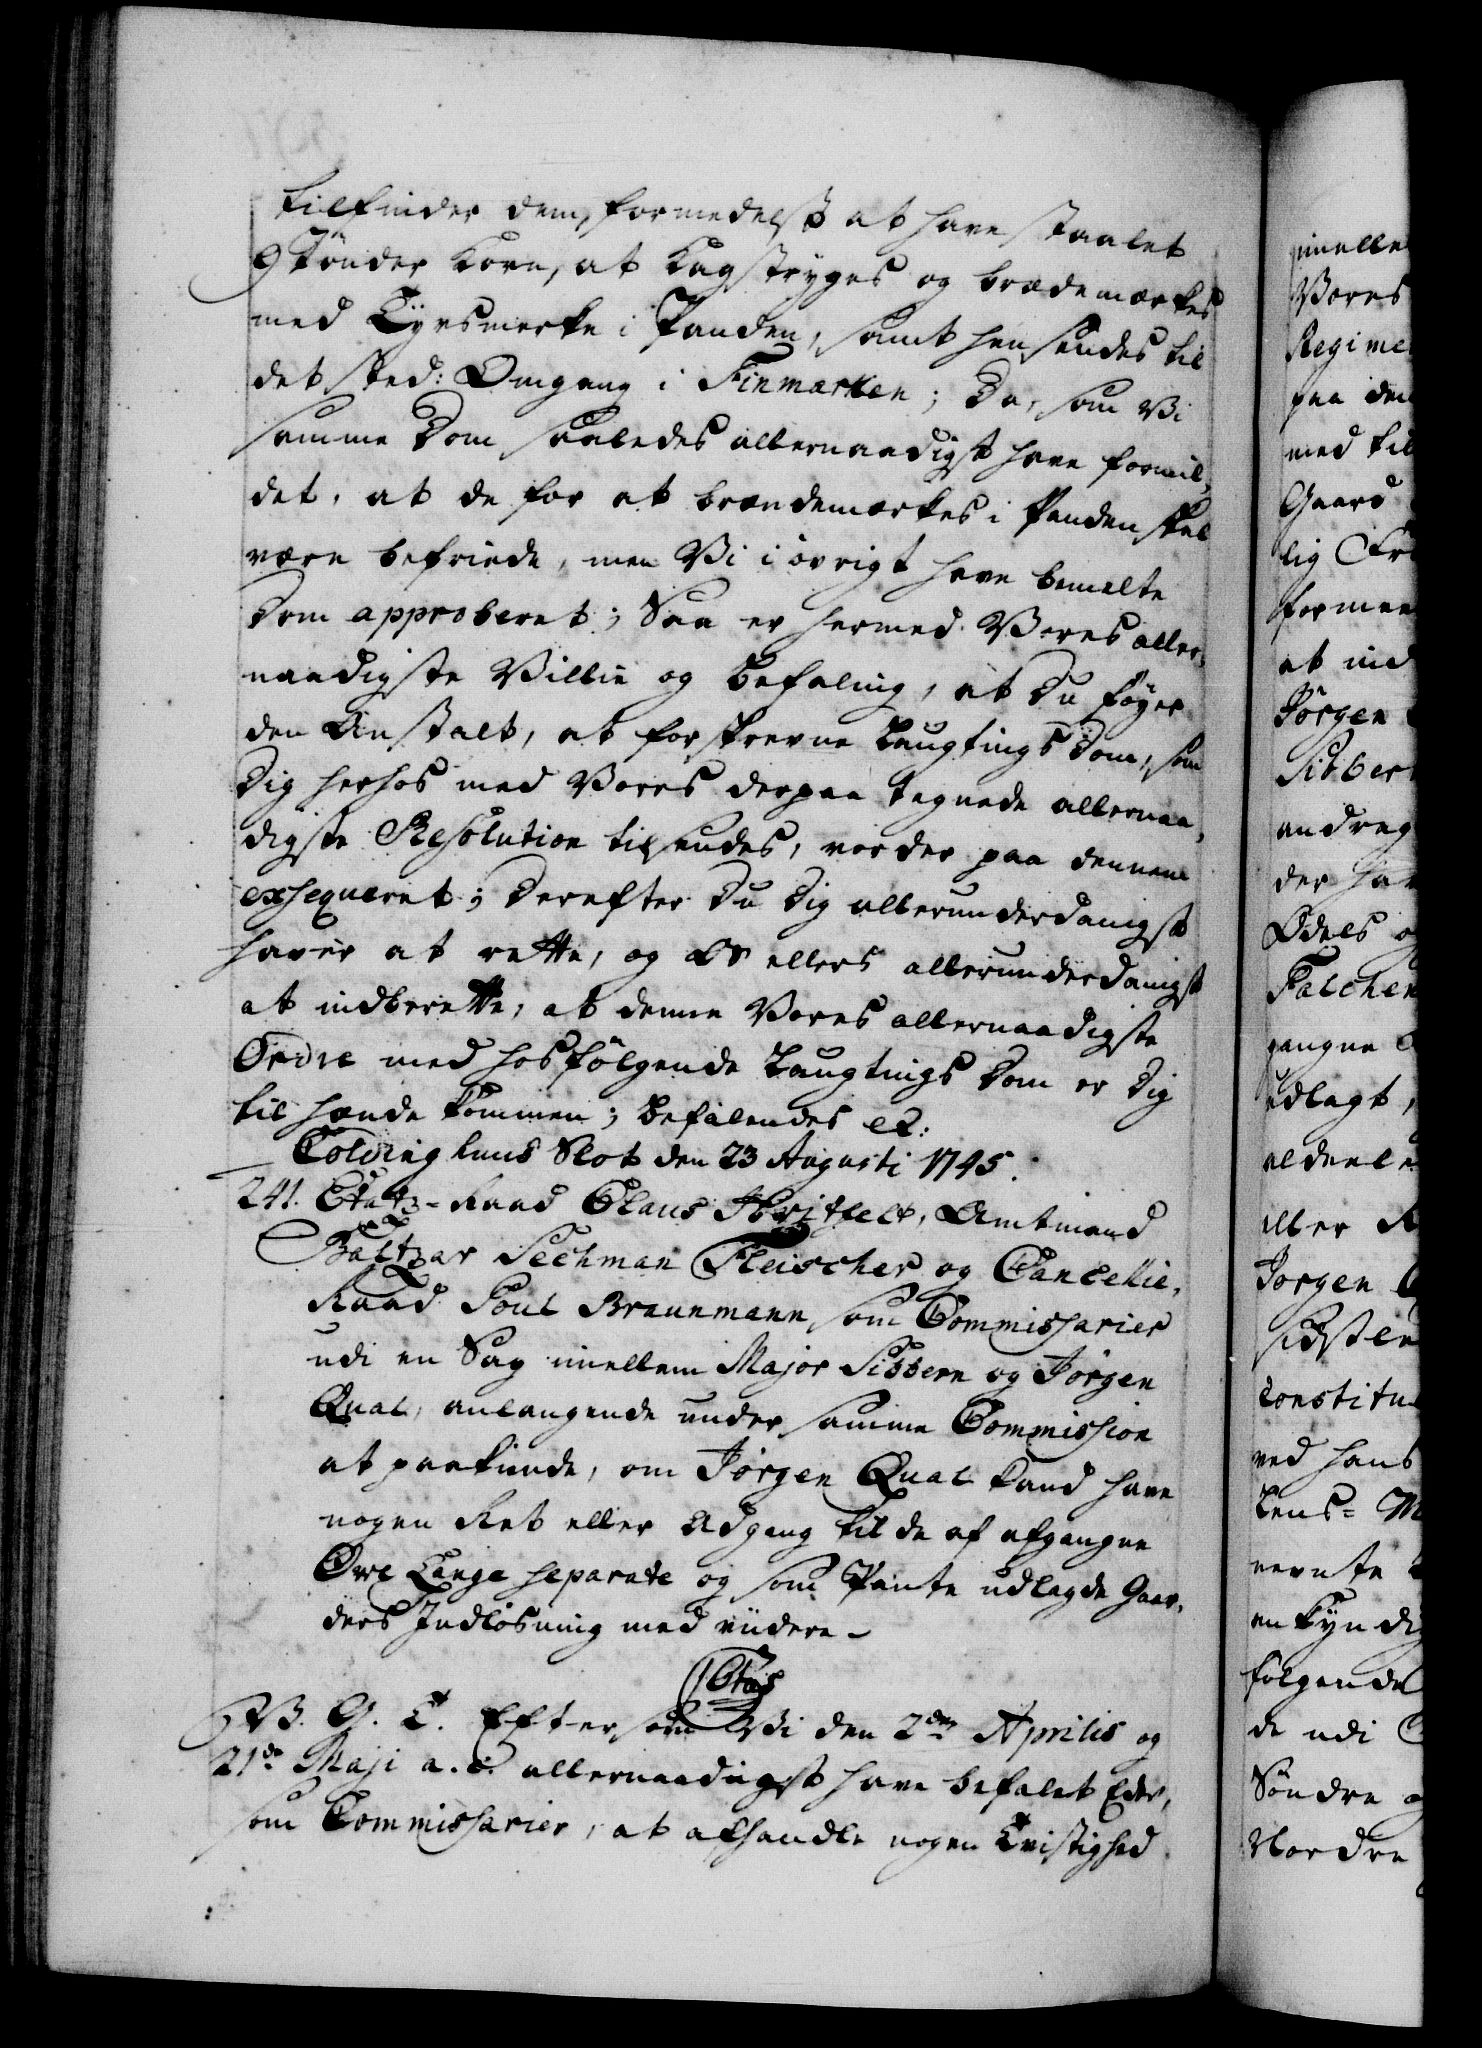 tilfinder dem, formedelst at have staalet
9 Tønder Korn, at kagstryges og brædemærkes
med Tyvsmerke i Panden, samt hensendes til
det sted: Omgang i Finmarken; Da, som Vi
samme Dom saaledes allernaadigst have formil-
det, at de for at brændemærkes i Panden skal
være befriede, men Vi i øvrigt have bemelte
Dom approberet; Saa er hermed Vores aller-
naadigste Villie og Befaling, at Du føyer
den Anstalt, at forskrevne Laugtings Dom, som
Dig herhos med Vores derpaa tegnede allernaa-
digste Resolution tilsendes, vorder paa dennem
exseqveret; Derefter Du Dig allerunderdanigst
haver at rette, og Os ellers allerunderdanigst
at indberette, at denne Vores allernaadigste
Ordre med hosfølgende Laugtings Dom er Dig
til hænde kommen; Befalendes etc:
Colding huus Slot den 23 Augusti 1745.
241. Etatz-Raad Claus Juritzfelt, Amtmand
Baltzar Sechman Fleischer og Cancellie-
Raad Poul Braunmann, som Commissarier
udi en Sag imellem Major Sibbern og Jørgen
Qual, anlangende under samme Commission
at paakiende, om Jørgen Qual kand have
nogen Ret eller Adgang til de af afgangne
Ove Lange separate og som Pante udlagde Gaar-
ders Indløsning med viidere –
C 6tus
V. G. T. Eftersom Vi den 2den Aprilis og
21de Maji a. c. allernaadigst have befalet Eder,
som Commissarier, at afhandle nogen Tvistighed
imelle
Vores
Regime
paa den
med til
Gaard
lig
formee
at ind
Jørgen
Sibber
andrag
der ha
Odels og
Falchen
gangne
udlagt,
aldeele
eller
Jørgen
sidste
constitu
ved hans
Lens= M
nevnte
ankyndig
følgende
de udi
Søndre og
Nordre